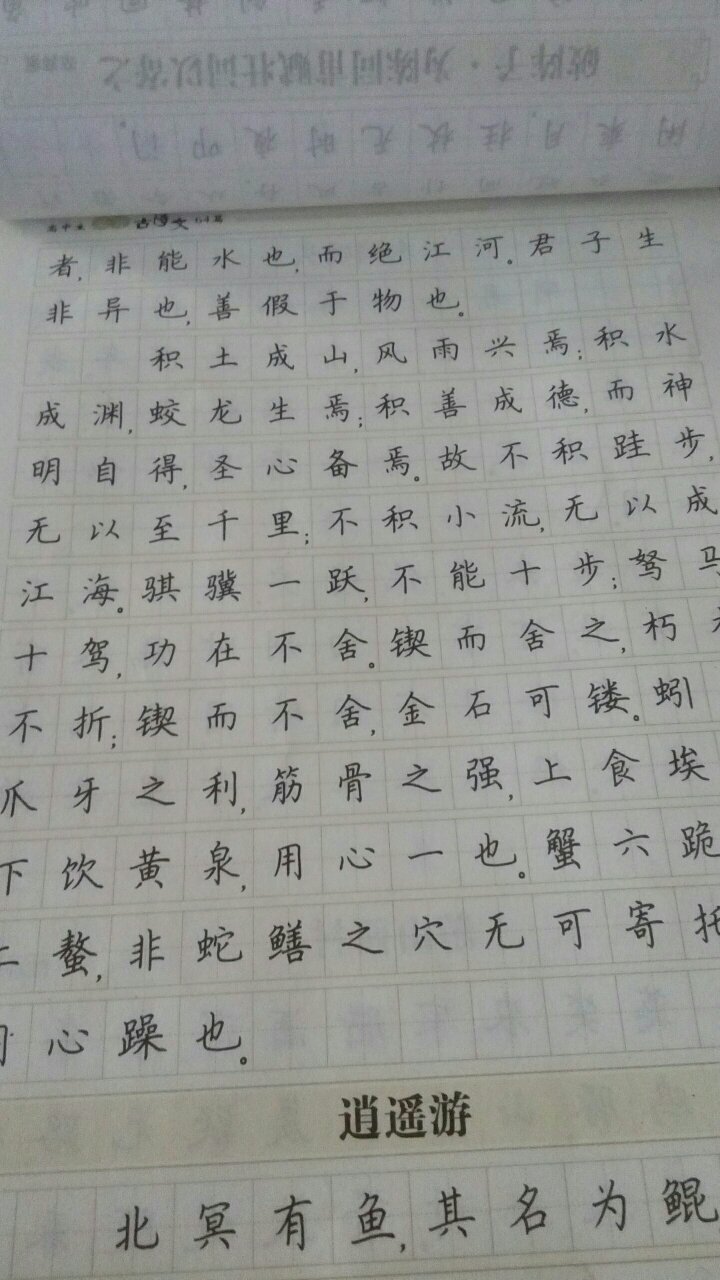 古诗文64篇
者,非能水也,而绝江河。君子生
非异也,善假于物也。
积土成山,风雨兴焉;积水
成渊,蛟龙生焉;积善成德,而神
明自得,圣心备焉。故不积跬步,
无以至千里;不积小流,无以成
江海。骐骥一跃,不能十步;驽马
十驾,功在不舍。锲而舍之,朽
不折;锲而不舍,金石可镂。蚓
爪牙之利,筋骨之强,上食埃
下饮黄泉,用心一也。蟹六跪
二螯,非蛇鳝之穴无可寄托
用心躁也。
逍遥游
北冥有鱼,其名为鲲